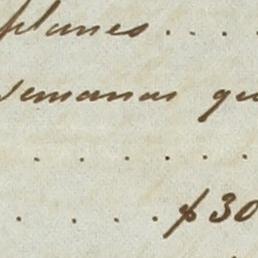 planes . . . .
semanas qu
. . . . . .
. . . . $30